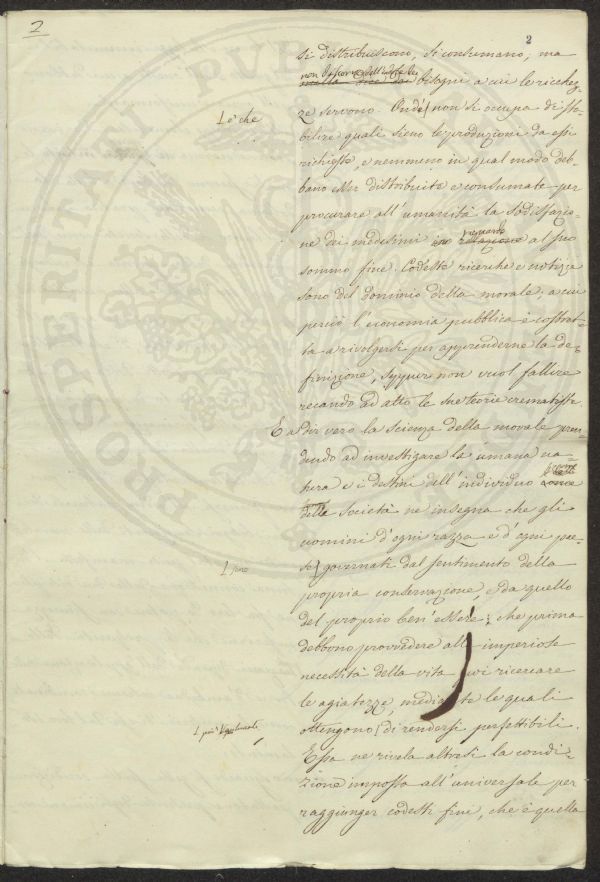 2
2
si distribuiscono, si consumano, ma
non discorre dell'indole dei
nulla dice dai bisogni a cui le ricchez-
ze servono. Ond'è non si occupa di sta-
I è che
bilire quali sieno le produzioni da essi
richieste, e nemmeno in qual modo deb-
bano esser distribuite e consumate per
procurare all'umanità la sodisfazio-
ne dei medesimi in relazione al suo
riguardo
sommo fine. Codeste ricerche e notizie
sono del dominio della morale; a cui
perciò l'economia pubblica è costret-
ta a rivolgersi per apprenderne la de-
finizione, seppur non vuol fallire
recando ad atto le sue teorie crematistiche.
E a dir vero la scienza della morale pren-
dendo ad investigare la umana na-
tura e i destini dell'individuo
delle società ne insegna che gli
uomini d'ogni razza e d'ogni pae-
se governati dal sentimento della
propria conservazione, e da quello
del proprio ben'essere; che prima
debbono provvedere alle imperiose
necessità della vita poi ricercare
le agiatezze mediante le quali
ottengono di rendersi perfettibili.
Essa ne rivela altresì la condi-
zione imposta all'universale per
raggiunger codesti fini, che è quella
PROSPERITATI PVBLICAE